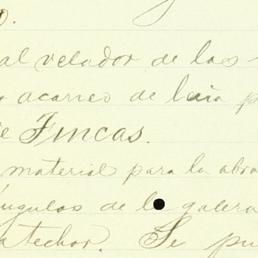 o.
al velador de las
acarreo de leña p
e Fincas.
material para la abra
ngulos de la galera
techar. Se pu